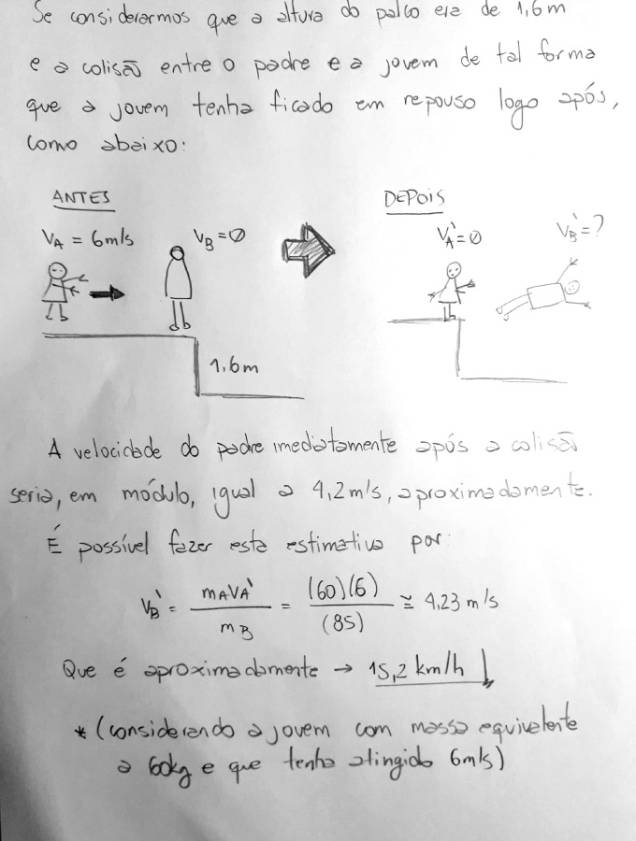 Se considerarmos que a altura do palco era de 1,6m
e a colisão entre o padre e a jovem de tal forma
que a jovem tenha ficado em repouso logo após,
como abaixo:
ANTES
DEPOIS
VA = 6m/s
VB = 0
VA' = 0
VB' = ?
1,6m
A velocidade do padre imediatamente após a colisão
seria, em módulo, igual a 4,2m/s, aproximadamente.
É possível fazer esta estimativa por:
VB' = mAVA' / mB = (60)(6) / (85) ≅ 4,23 m/s
Que é aproximadamente → 15,2 km/h
* (considerando a jovem com massa equivalente
a 60kg e que tenha atingido 6m/s)